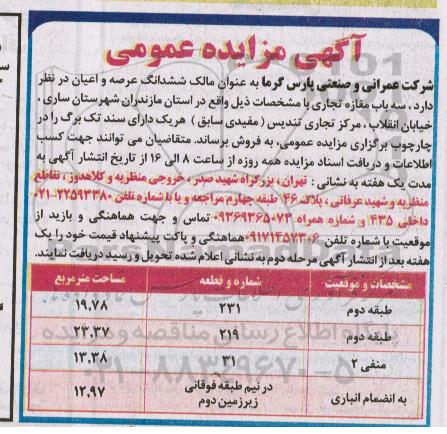 آگهی مزایده عمومی
شرکت عمرانی و صنعتی پارس گرما به عنوان مالک ششدانگ عرصه و اعیان در نظر
دارد، سه باب مغازه تجاری با مشخصات ذیل واقع در استان مازندران شهرستان ساری،
خیابان انقلاب، مرکز تجاری تندیس (مفیدی سابق) هریک دارای سند تک برگ را در
چارچوب برگزاری مزایده عمومی، به فروش برساند. متقاضیان می توانند جهت کسب
اطلاعات و دریافت اسناد مزایده همه روزه از ساعت ۸ الی ۱۶ از تاریخ انتشار آگهی به
مدت یک هفته به نشانی: تهران، بزرگراه شهید صدر، خروجی منظریه و کلاهدوز، تقاطع
منظریه و شهید عرفانی، پلاک ۴۶ طبقه چهارم مراجعه و یا با شماره تلفن ۲۲۵۹۳۳۸۰-۰۲۱
داخلی ۴۳۵ و شماره همراه ۰۹۳۶۹۳۶۵۰۷۳ تماس و جهت هماهنگی و بازدید از
موقعیت با شماره تلفن ۰۹۱۷۱۴۵۷۳۰۶ هماهنگی و پاکت پیشنهاد قیمت خود را یک
هفته بعد از انتشار آگهی مرحله دوم به نشانی اعلام شده تحویل و رسید دریافت نمایند.
مشخصات و موقعیت شماره و قطعه مساحت مترمربع
طبقه دوم ۲۳۱ ۱۹.۷۸
طبقه دوم ۲۱۹ ۲۳.۳۷
منفی ۲ ۳۱ ۱۳.۳۸
به انضمام انباری در نیم طبقه فوقانی ۱۲.۹۷
زیرزمین دوم
پایگاه اطلاع رسانی مناقصه و مزایده
۰۲۱-۸۸۳۴۹۶۷۰-۵